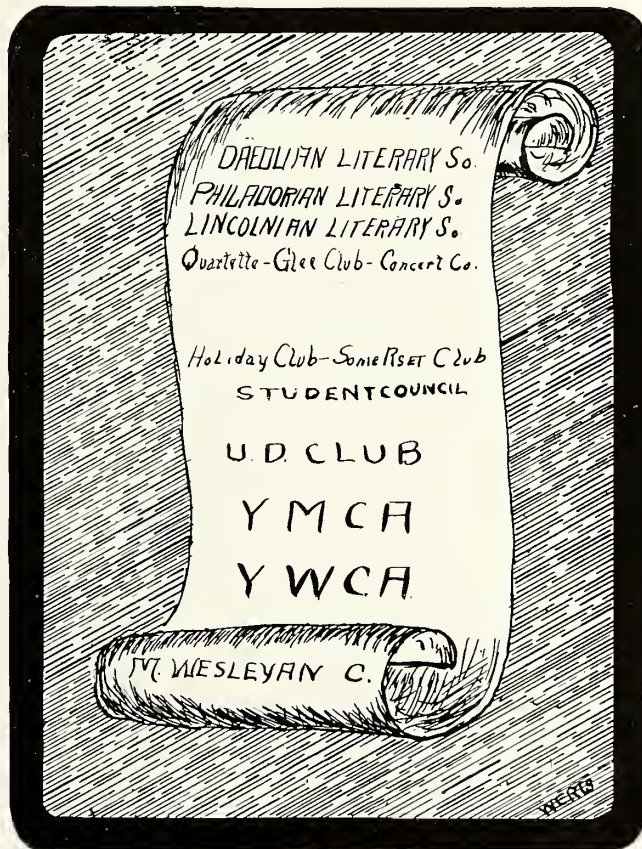 DAEOLIAN LITERARY So.
PHILADORIAN LITERARY S.
LINCOLNIAN LITERARY S.
Quartette-Glee Club-Concert Co.
Holiday Club-SomeRset Club
STUDENT COUNCIL
U.D. CLUB
YMCA
YWCA
M. WESLEYAN C.
WERTS